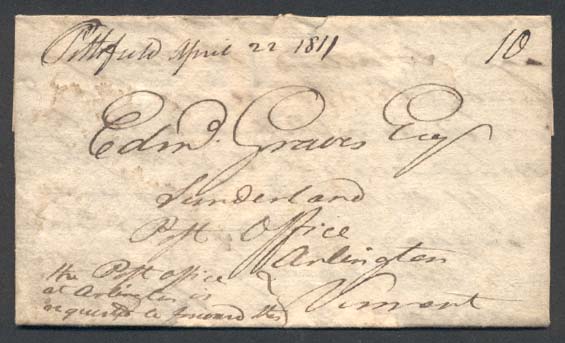 Pittsfield April 22 1811 10
Edmd. Graves Esq
Sunderland
Post Office
Arlington
Vermont
the Post office
at Arlington is
requested to forward this